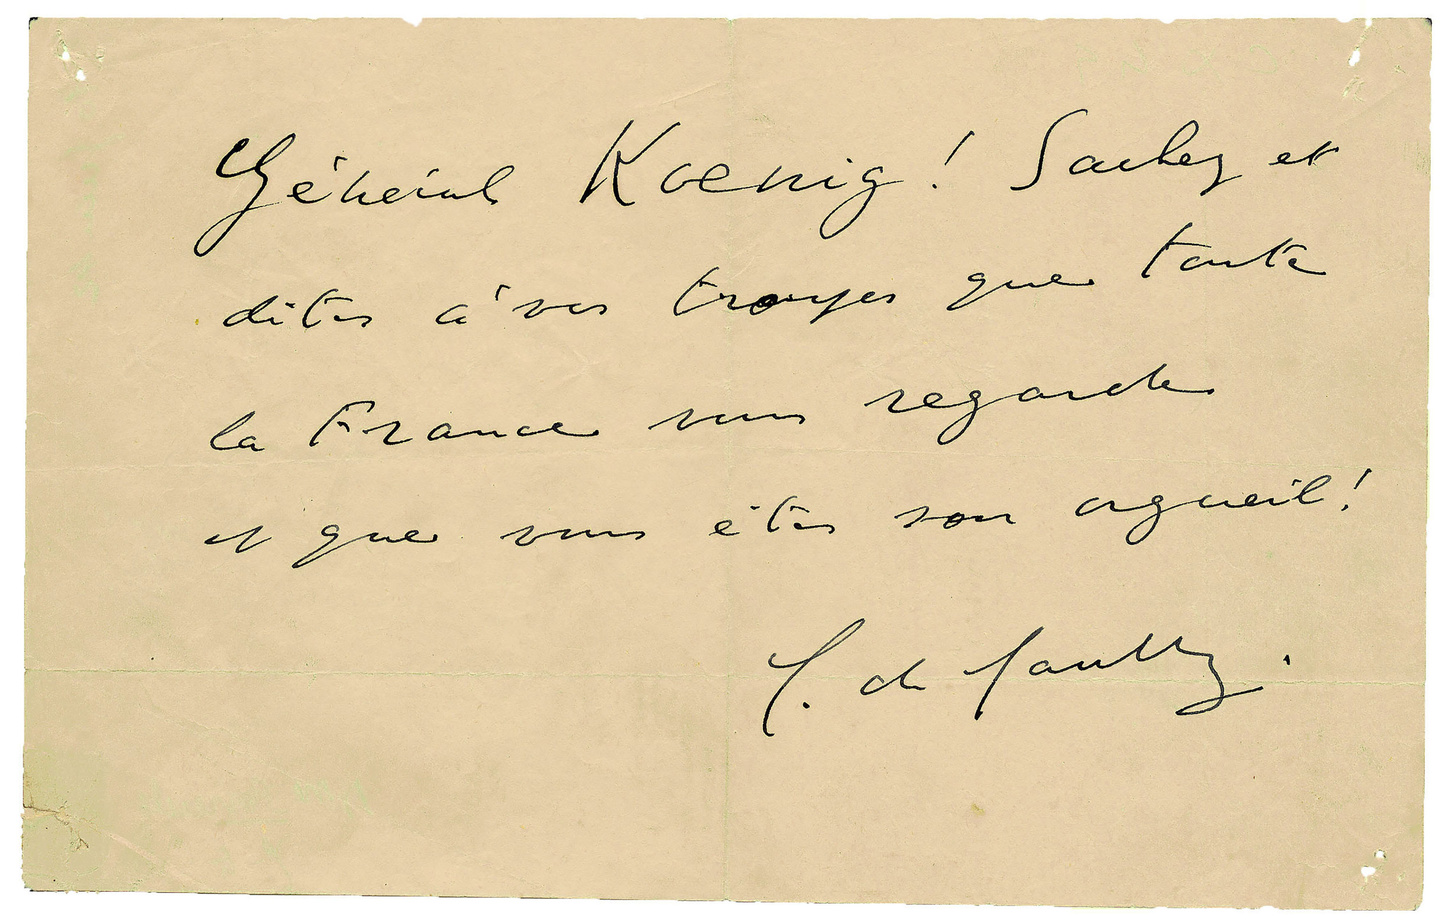 Général Koenig ! Sachez et
dites à vos troupes que toute
la France vous regarde
et que vous êtes son orgueil !
C. de Gaulle.